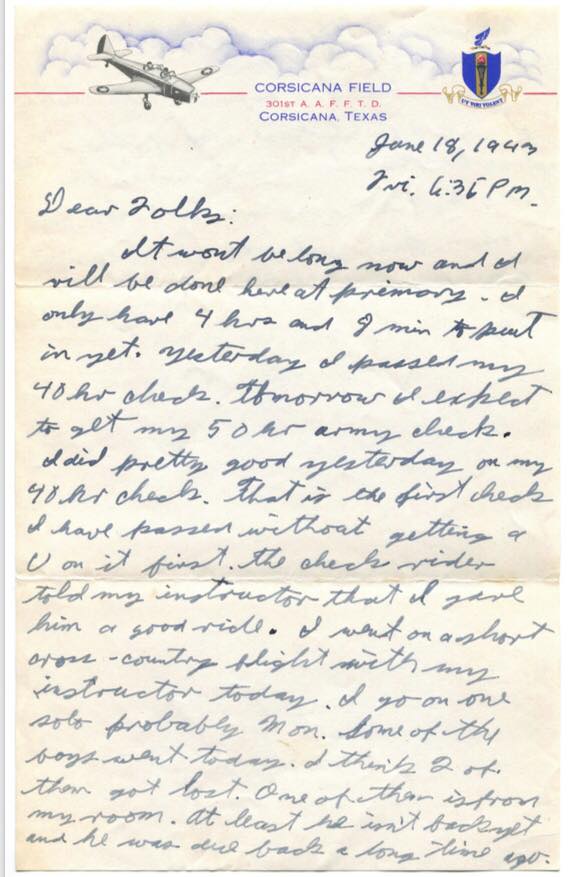 CORSICANA FIELD
301ST A. A. F. F. T. D.
CORSICANA, TEXAS
UT VIRI VOLENT
June 18, 1943
Fri. 6:36 PM.
Dear Folks:
It wont be long now and I
will be done here at primary. I
only have 4 hrs and 9 min to put
in yet. Yesterday I passed my
40 hr check. Tomorrow I expect
to get my 50 hr army check.
I did pretty good yesterday on my
40 hr check. That is the first check
I have passed without getting a
U on it first. The check rider
told my instructor that I gave
him a good ride. I went on a short
cross-country flight with my
instructor today. I go on one
solo probably Mon. Some of the
boys went today. I think 2 of
them got lost. One of them is from
my room. At least he isn't back yet
and he was due back a long time ago.